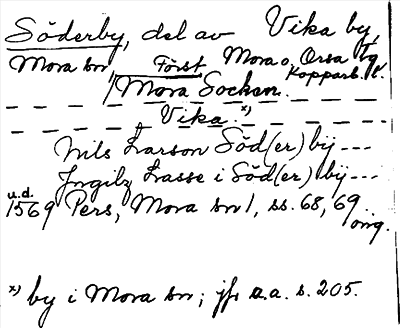 Söderby, del av Vika by,
Mora sn Först Mora o. Orsa tg
Kopparb. l.
/Mora Socken.
Vika. x)
Nils Larson Söd(er) bÿ ---
Ingilz Lasse i Söd(er) bÿ ---
u.d.
1569 Pers, Mora sn 1, ss. 68, 69
orig.
x) by i Mora sn; jfr a.a. s. 205.